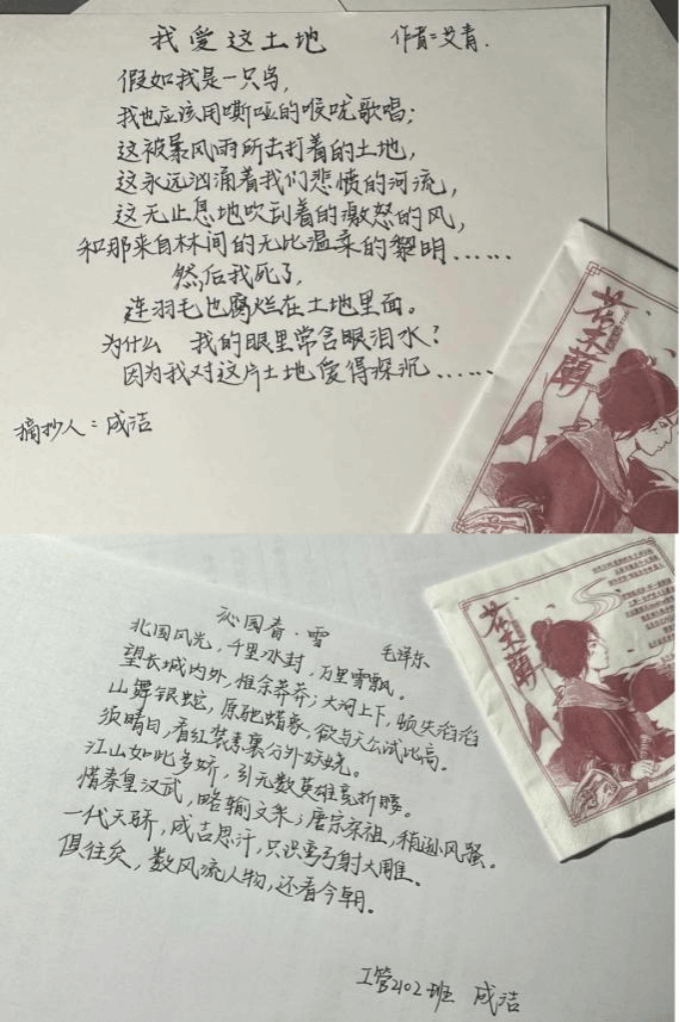 我爱这土地 作者=艾青.
假如我是一只鸟,
我也应该用嘶哑的喉咙歌唱;
这被暴风雨所击打着的土地,
这永远汹涌着我们悲愤的河流,
这无止息地吹刮着的激怒的风,
和那来自林间的无比温柔的黎明……
然后我死了,
连羽毛也腐烂在土地里面。
为什么 我的眼里常含眼泪水?
因为我对这片土地爱得深沉……
摘抄人:成洁
花木蘭
沁园春·雪 毛泽东
北国风光,千里冰封,万里雪飘。
望长城内外,惟余莽莽;大河上下,顿失滔滔
山舞银蛇,原驰蜡象,欲与天公试比高。
须晴日,看红装素裹分外妖娆。
江山如此多娇,引无数英雄竞折腰。
惜秦皇汉武,略输文采;唐宗宋祖,稍逊风骚。
一代天骄,成吉思汗,只识弯弓射大雕。
俱往矣,数风流人物,还看今朝。
花木蘭
工管2402班 成洁